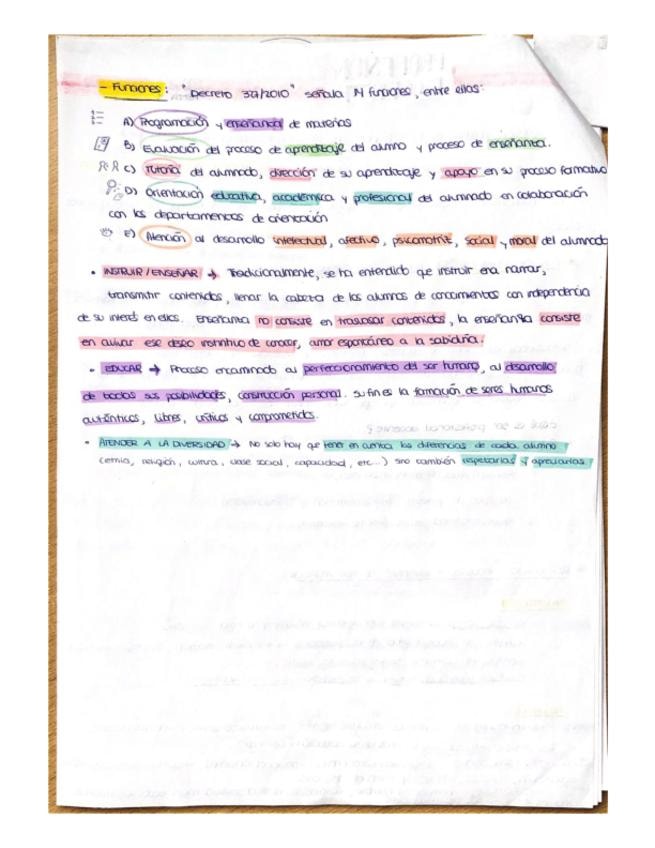 - Funciones: "Decreto 327/2010" señala 14 funciones, entre ellas:
A) Programación y enseñanza de materias
B) Evaluación del proceso de aprendizaje del alumno y proceso de enseñanza.
C) Tutoría del alumnado, dirección de su aprendizaje y apoyo en su proceso formativo
D) Orientación educativa, académica y profesional del alumnado en colaboración
con los departamentos de orientación
E) Atención al desarrollo intelectual, afectivo, psicomotriz, social y moral del alumnado
• INSTRUIR/ENSEÑAR → Tradicionalmente, se ha entendido que instruir era narrar,
transmitir contenidos, llenar la cabeza de los alumnos de conocimientos con independencia
de su interés en ellos. Enseñanza no consiste en traspasar contenidos, la enseñanza consiste
en avivar ese deseo instintivo de conocer, amor espontáneo a la sabiduría.
• EDUCAR → Proceso encaminado al perfeccionamiento del ser humano, al desarrollo
de todas sus posibilidades, construcción personal. Su fin es la formación de seres humanos
auténticos, libres, críticos y comprometidos.
• ATENDER A LA DIVERSIDAD → No solo hay que tener en cuenta las diferencias de cada alumno
(etnia, religión, cultura, clase social, capacidad, etc...) sino también respetarlas y apreciarlas